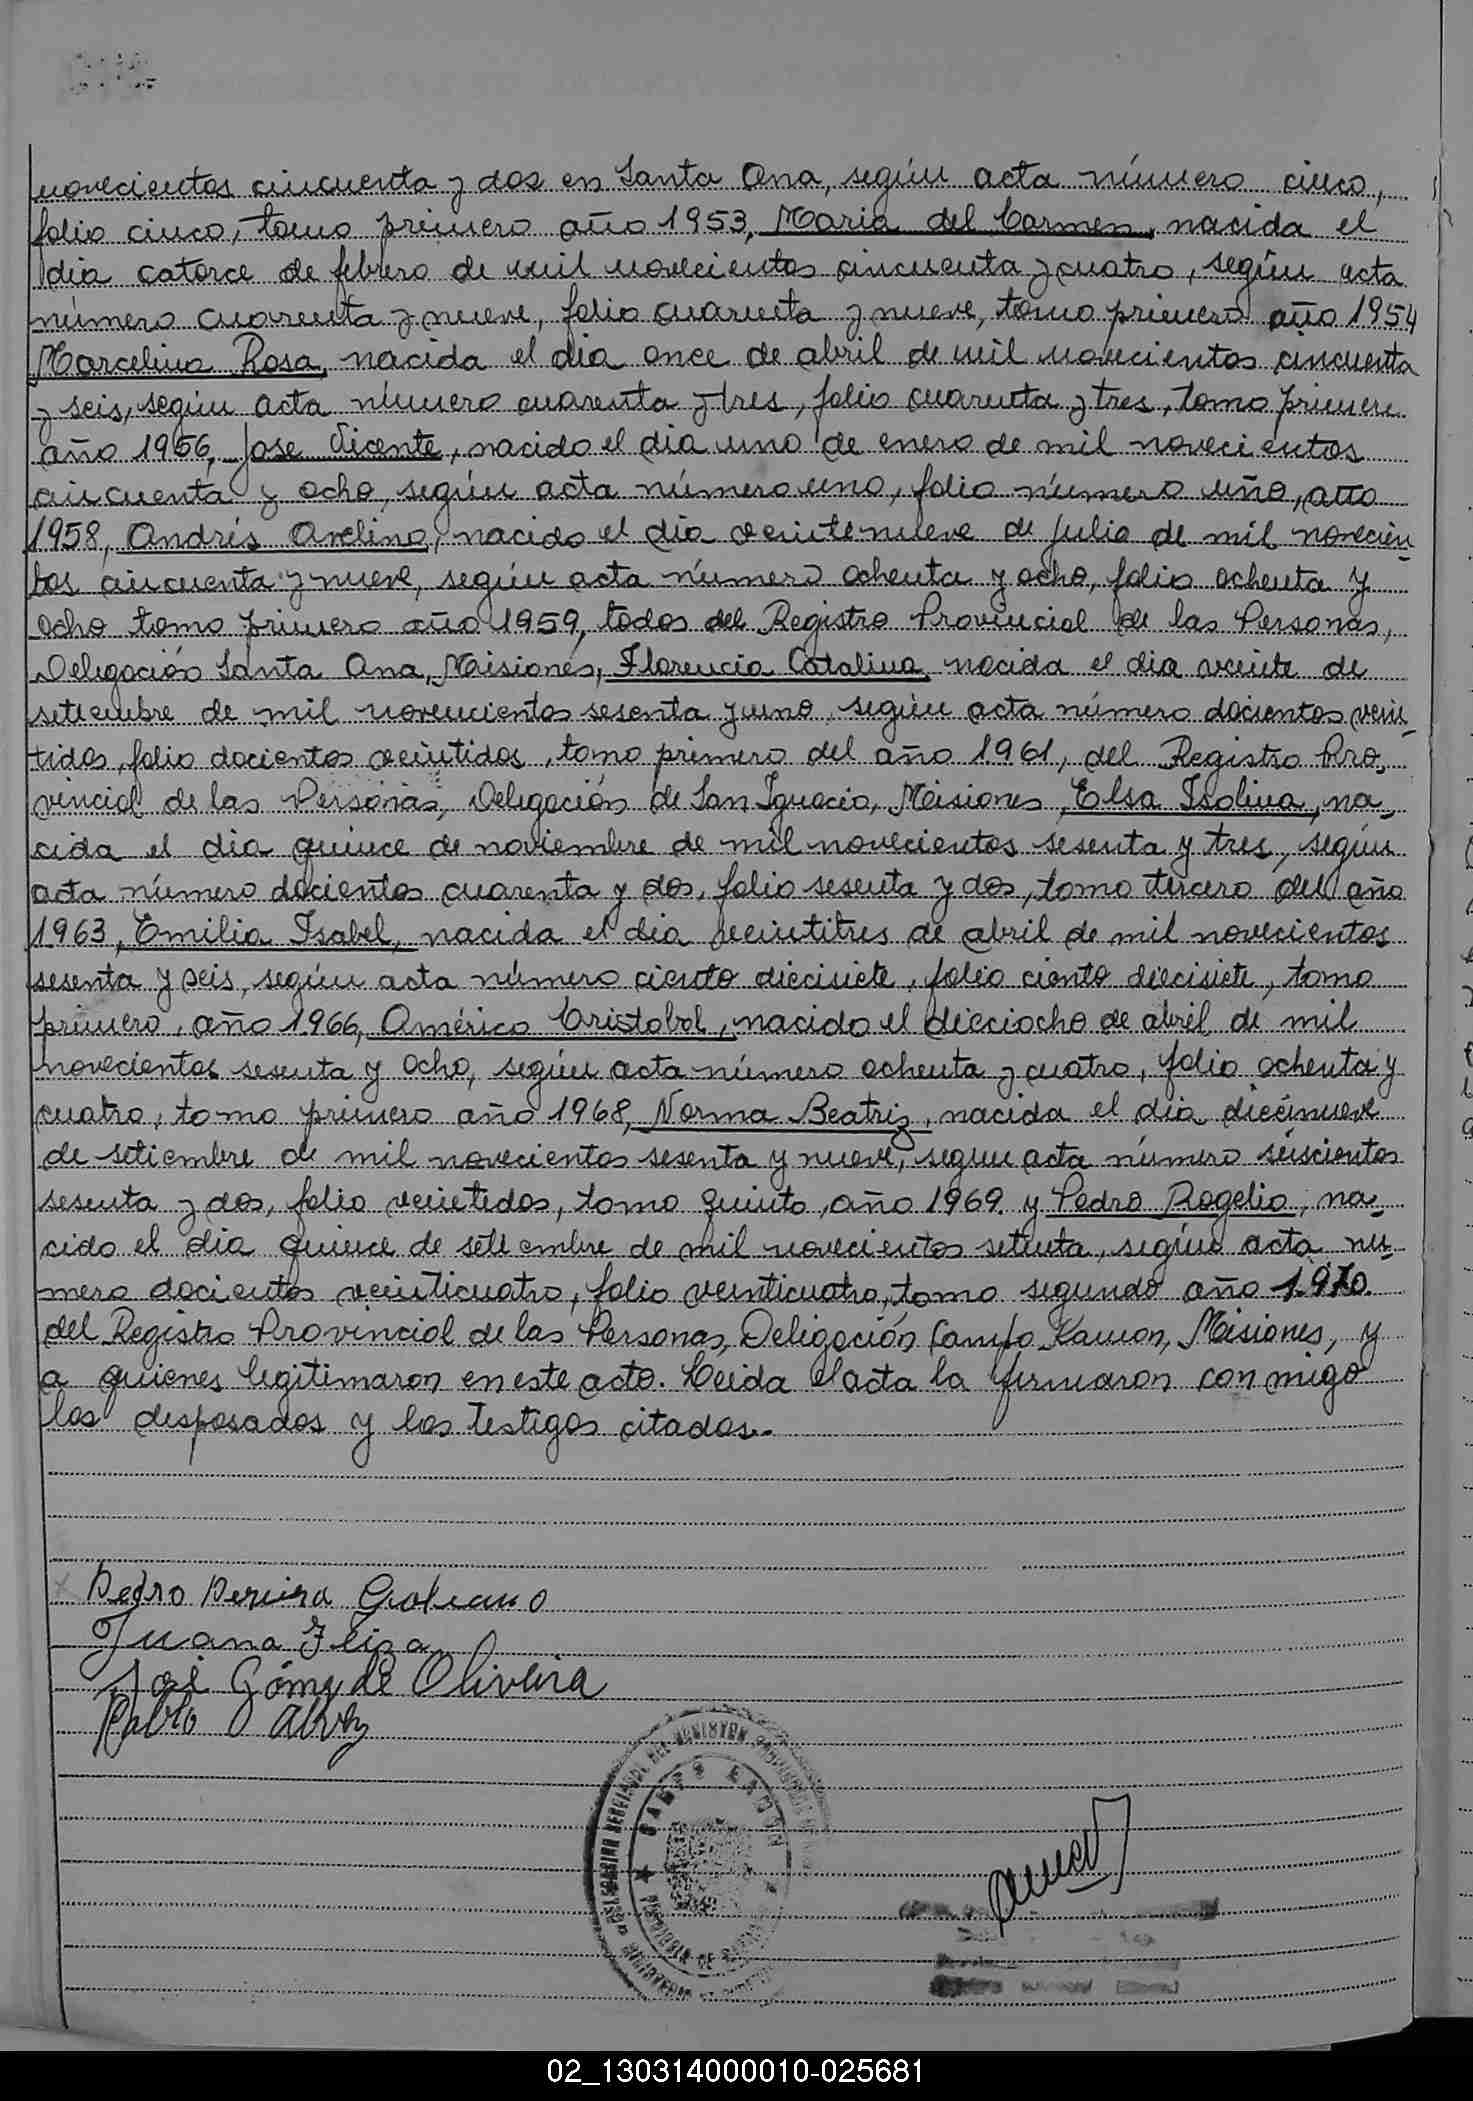 novecientos cincuenta y dos en Santa Ana, según acta número cinco,
folio cinco, tomo primero año 1953, Maria del Carmen, nacida el
dia catorce de febrero de mil novecientos cincuenta y cuatro, según acta
número cuarenta y nueve, folio cuarenta y nueve, tomo primero año 1954
Marcelina Rosa, nacida el dia once de abril de mil novecientos cincuenta
y seis, según acta número cuarenta y tres, folio cuarenta y tres, tomo primero
año 1956, Jose Vicente, nacido el dia uno de enero de mil novecientos
cincuenta y ocho, según acta número uno, folio número uno, año
1958, Andrés Avelino, nacido el dia veintenueve de julio de mil novecien-
tos cincuenta y nueve, según acta número ochenta y ocho, folio ochenta y
ocho tomo primero año 1959, todos del Registro Provincial de las Personas,
Delegación Santa Ana, Misiones, Florencia Catalina nacida el dia veinte de
setiembre de mil novecientos sesenta y uno, según acta número docientos vein-
tidos, folio docientos veintidos, tomo primero del año 1961, del Registro Pro-
vincial de las Personas, Delegación de San Ignacio, Misiones, Elsa Isolina, na-
cida el dia quince de noviembre de mil novecientos sesenta y tres, según
acta número docientos cuarenta y dos, folio sesenta y dos, tomo tercero del año
1963, Emilia Isabel, nacida el dia veintitres de abril de mil novecientos
sesenta y seis, según acta número ciento diecisiete, folio ciento diecisiete, tomo
primero, año 1966, Américo Cristobal, nacido el dieciocho de abril de mil
novecientos sesenta y ocho, según acta número ochenta y cuatro, folio ochenta y
cuatro, tomo primero año 1968, Norma Beatriz, nacida el dia diecinueve
de setiembre de mil novecientos sesenta y nueve, segun acta número seiscientos
sesenta y dos, folio veintedos, tomo quinto, año 1969 y Pedro Rogelio, na-
cido el dia quince de setiembre de mil novecientos setenta, según acta nu-
mero docientos veinticuatro, folio veinticuatro, tomo segundo año 1.970.
del Registro Provincial de las Personas, Delegación Campo Ramon, Misiones, y
a quienes legitimaron en este acto. Leida el acta la firmaron conmigo
los desposados y los testigos citados.-
Pedro Pereira Galeano
Juana
José Gómez de Oliveira
Pablo Alvez
CAMPO RAMON
02_130314000010-025681